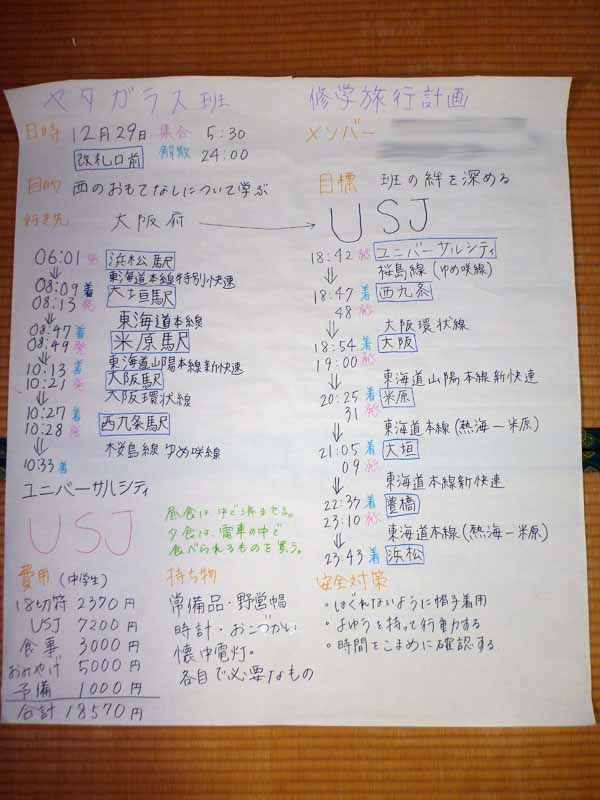 ヤタガラス班 修学旅行計画
日時 12月29日 集合 5:30
改札口前 解散 24:00
メンバー
目的 西のおもてなしについて学ぶ
目標 班の絆を深める
行き先 大阪府 → USJ
06:01 発 浜松駅
⇓ 東海道本線特別快速
08:09 着 大垣駅
08:13 発
⇓ 東海道本線
08:47 着 米原駅
08:49 発
⇓ 東海道山陽本線新快速
10:13 着 大阪駅
10:21 発
⇓ 大阪環状線
10:27 着 西九条駅
10:28 発
⇓ 桜島線ゆめ咲線
10:33 着
ユニバーサルシティ
USJ
昼食は中で済ませる。
夕食は、電車の中で
食べられるものを買う。
18:42 発 ユニバーサルシティ
⇓ 桜島線(ゆめ咲線)
18:47 着 西九条
48 発
⇓ 大阪環状線
18:54 着 大阪
19:00 発
⇓ 東海道山陽本線新快速
20:25 着 米原
31 発
⇓ 東海道本線(熱海ー米原)
21:05 着 大垣
09 発
⇓ 東海道本線新快速
22:37 着 豊橋
23:10 発
⇓ 東海道本線(熱海ー米原)
23:43 着 浜松
費用(中学生)
18切符 2370円
USJ 7200円
食事 3000円
おみやげ 5000円
予備 1000円
合計 18570円
持ち物
常備品・野営帽
時計・おこづかい
懐中電灯。
各自で必要なもの
安全対策
・はぐれないように帽子着用
・よゆうを持って行動する
・時間をこまめに確認する